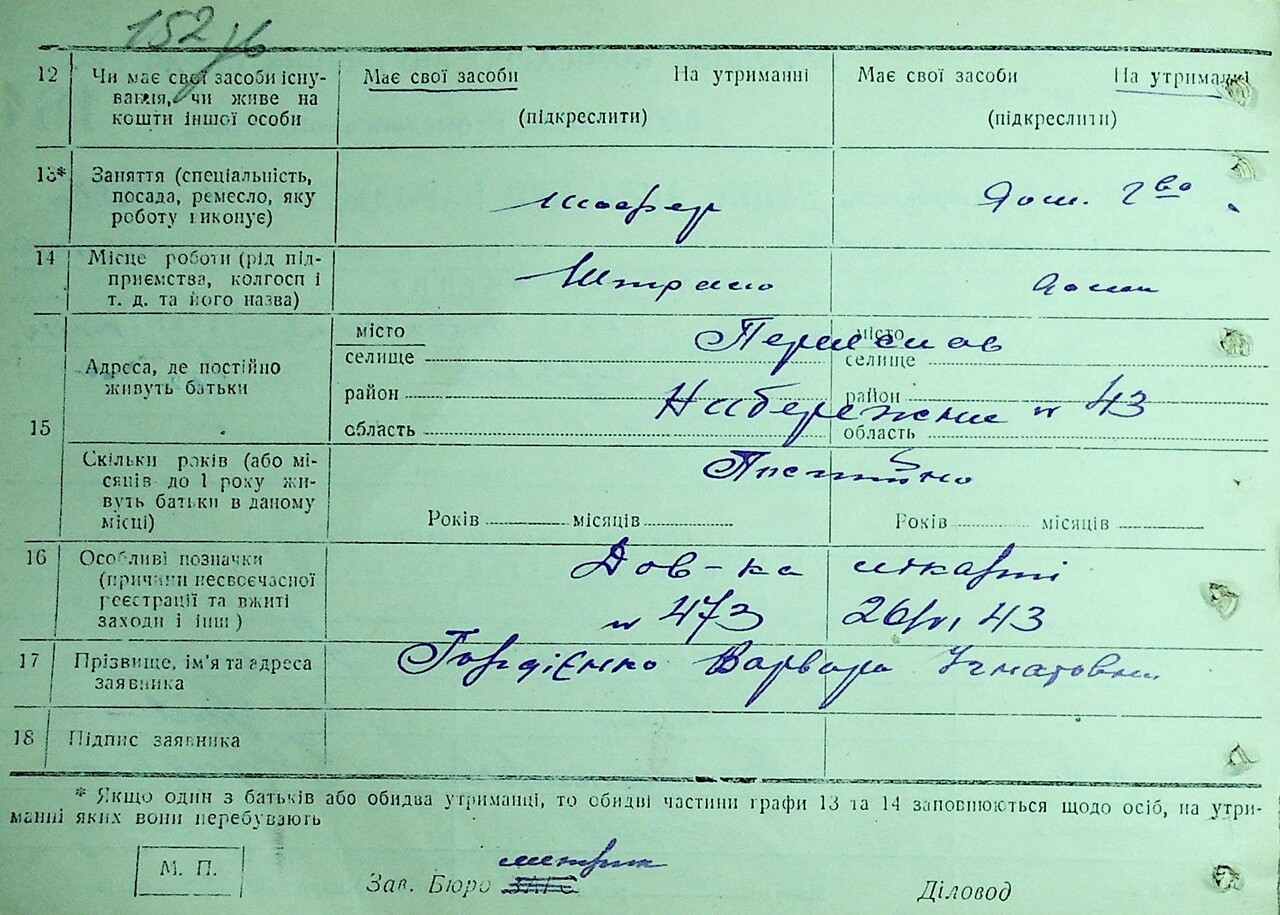 152
12 Чи має свої засоби існу- Має свої засоби На утриманні Має свої засоби На утриманні
вання, чи живе на
кошти іншої особи (підкреслити) (підкреслити)
13* Заняття (спеціальність,
посада, ремесло, яку шофер Дом. г-во
роботу виконує)
14 Місце роботи (рід під-
приємства, колгосп і дома
т. д. та його назва)
місто Переяслав місто
Адреса, де постійно селище селище
живуть батьки район Набережна № 43 район
15 область область
Скільки років (або мі- Постійно
сяців до 1 року жи-
вуть батьки в даному
місці) Років місяців Років місяців
16 Особливі позначки Дов-ка лікарні
(причини несвоєчасної
реєстрації та вжиті № 473 26/VI 43
заходи і інш)
17 Прізвище, ім'я та адреса Гордієнко Варвара Игнатовна
заявника
18 Підпис заявника
* Якщо один з батьків або обидва утриманці, то обидві частини графи 13 та 14 заповнюються щодо осіб, на утри-
манні яких вони перебувають
метрик
М. П. Зав. Бюро ЗАГС Діловод